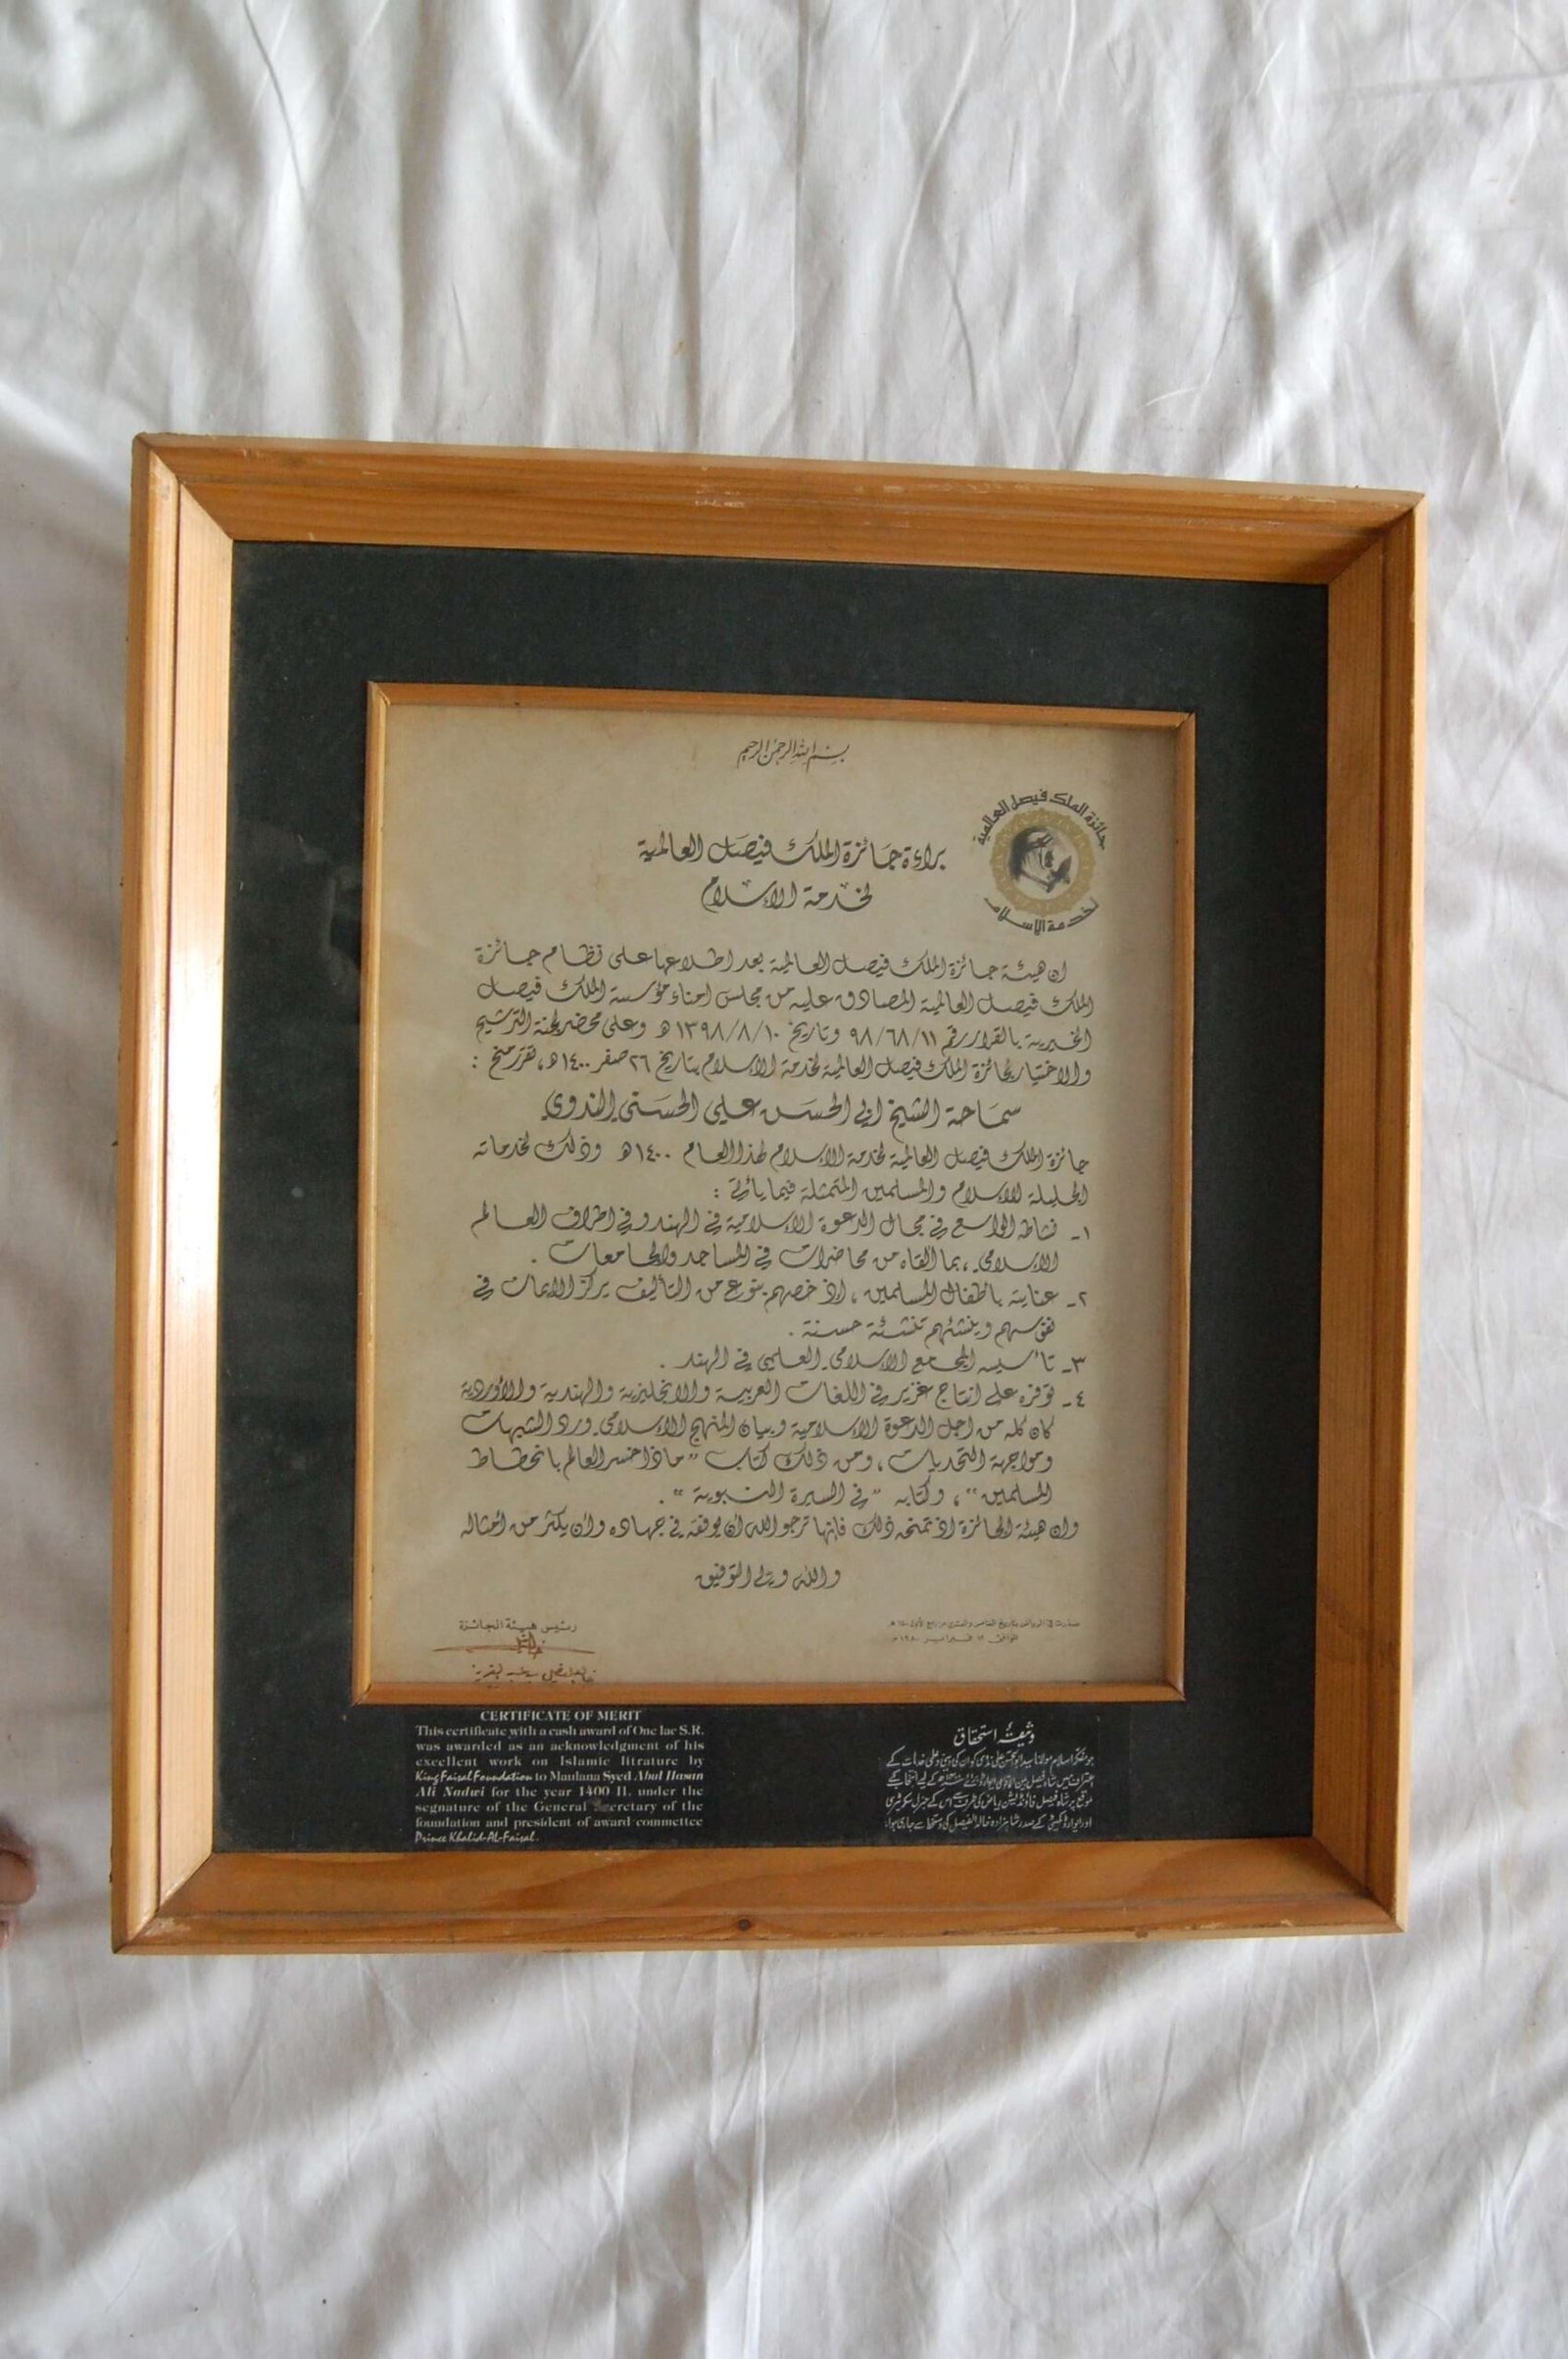 بسم الله الرحمن الرحيم
جائزة الملك فيصل العالمية
لخدمة الإسلام
براءة جائزة الملك فيصل العالمية
لخدمة الإسلام
ان هيئة جائزة الملك فيصل العالمية بعد اطلاعها على نظام جائزة
الملك فيصل العالمية المصادق عليه من مجلس امناء مؤسسة الملك فيصل
الخيرية بالقرار رقم ٩٨/٦٨/١١ وتاريخ ١٣٩٨/٨/١٠ه وعلى محضر لجنة الترشيح
والاختيار لجائزة الملك فيصل العالمية لخدمة الإسلام بتاريخ ٢٦ صفر ١٤٠٠ه، تقرر منح :
سماحة الشيخ ابي الحسن علي الحسني الندوي
جائزة الملك فيصل العالمية لخدمة الإسلام لهذا العام ١٤٠٠ه وذلك لخدماته
الجليلة للإسلام والمسلمين المتمثلة فيما يأتي :
١- نشاطه الواسع في مجال الدعوة الإسلامية في الهند وفي اطراف العالم
الإسلامي، بما ألقاه من محاضرات في المساجد والجامعات .
٢- عنايته بأطفال المسلمين، اذ خصهم بنوع من التأليف يركز الايمان في
نفوسهم وينشئهم تنشئة حسنة .
٣- تأسيسه المجمع الإسلامي العلمي في الهند .
٤- توفره على انتاج غزير في اللغات العربية والانجليزية والهندية والأوردية
كان كله من اجل الدعوة الإسلامية وبيان المنهج الإسلامي ورد الشبهات
ومواجهة التحديات، ومن ذلك كتاب "ماذا خسر العالم بانحطاط
المسلمين"، وكتابه "في السيرة النبوية" .
وان هيئة الجائزة اذ تمنحه ذلك فإنها ترجو الله أن يوفقه في جهاده وأن يكثر من أمثاله
والله ولي التوفيق
رئيس هيئة الجائزة
CERTIFICATE OF MERIT
This certificate with a cash award of One lac S.R.
was awarded as an acknowledgment of his
excellent work on Islamic litrature by
King Faisal Foundation to Maulana Syed Abul Hasan
Ali Nadwi for the year 1400 H. under the
segnature of the General Secretary of the
foundation and president of award commettee
Prince Khalid-AL-Faisal.
وثیقۂ استحقاق